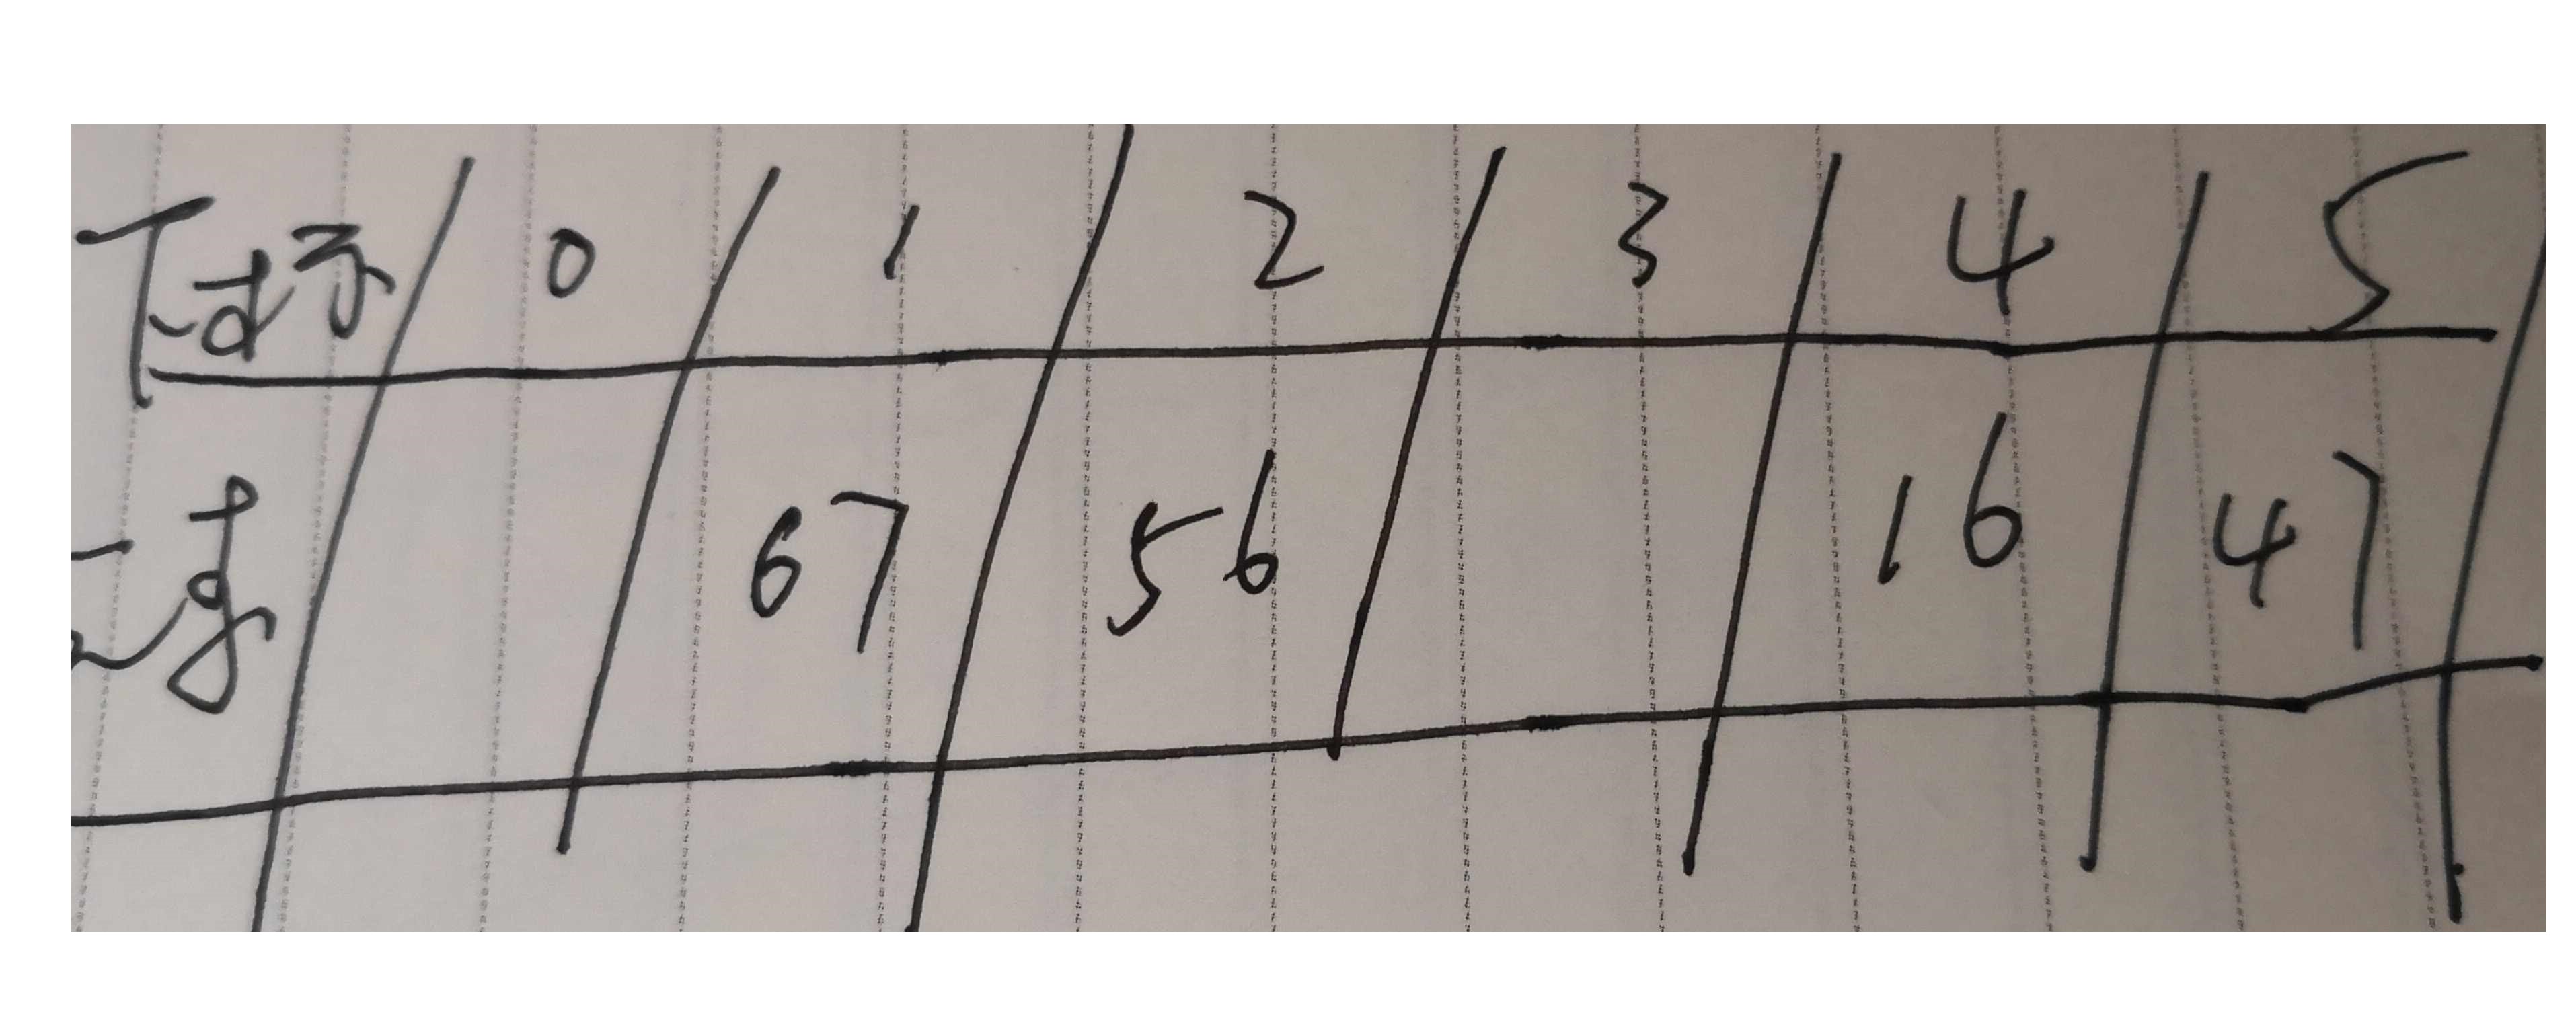 下标 0 1 2 3 4 5
67 56 16 47